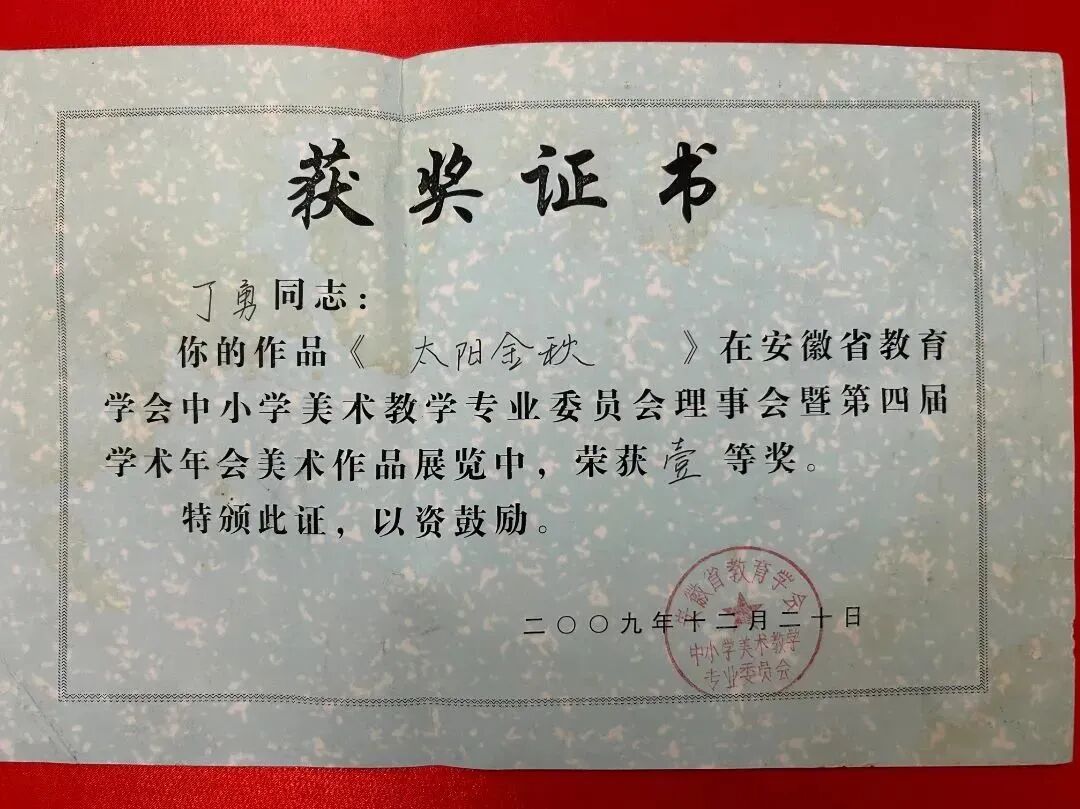 获奖证书
丁勇同志：
你的作品《 太阳金秋 》在安徽省教育
学会中小学美术教学专业委员会理事会暨第四届
学术年会美术作品展览中，荣获壹等奖。
特颁此证，以资鼓励。
安徽省教育学会
二〇〇九年十二月二十日
中小学美术教学
专业委员会